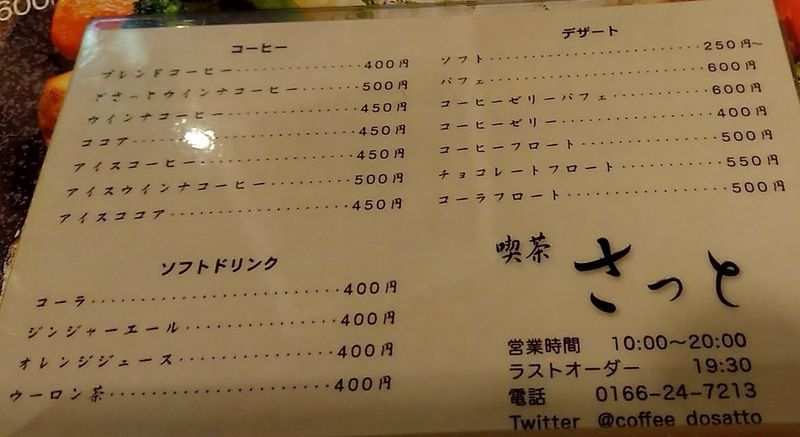 600
コーヒー
ブレンドコーヒー 400円
どさっとウインナコーヒー 500円
ウインナコーヒー 450円
ココア 450円
アイスコーヒー 450円
アイスウインナコーヒー 500円
アイスココア 450円
ソフトドリンク
コーラ 400円
ジンジャーエール 400円
オレンジジュース 400円
ウーロン茶 400円
デザート
ソフト 250円〜
パフェ 600円
コーヒーゼリーパフェ 600円
コーヒーゼリー 400円
コーヒーフロート 500円
チョコレートフロート 550円
コーラフロート 500円
喫茶 さっと
営業時間 10:00〜20:00
ラストオーダー 19:30
電話 0166-24-7213
Twitter @coffee_dosatto